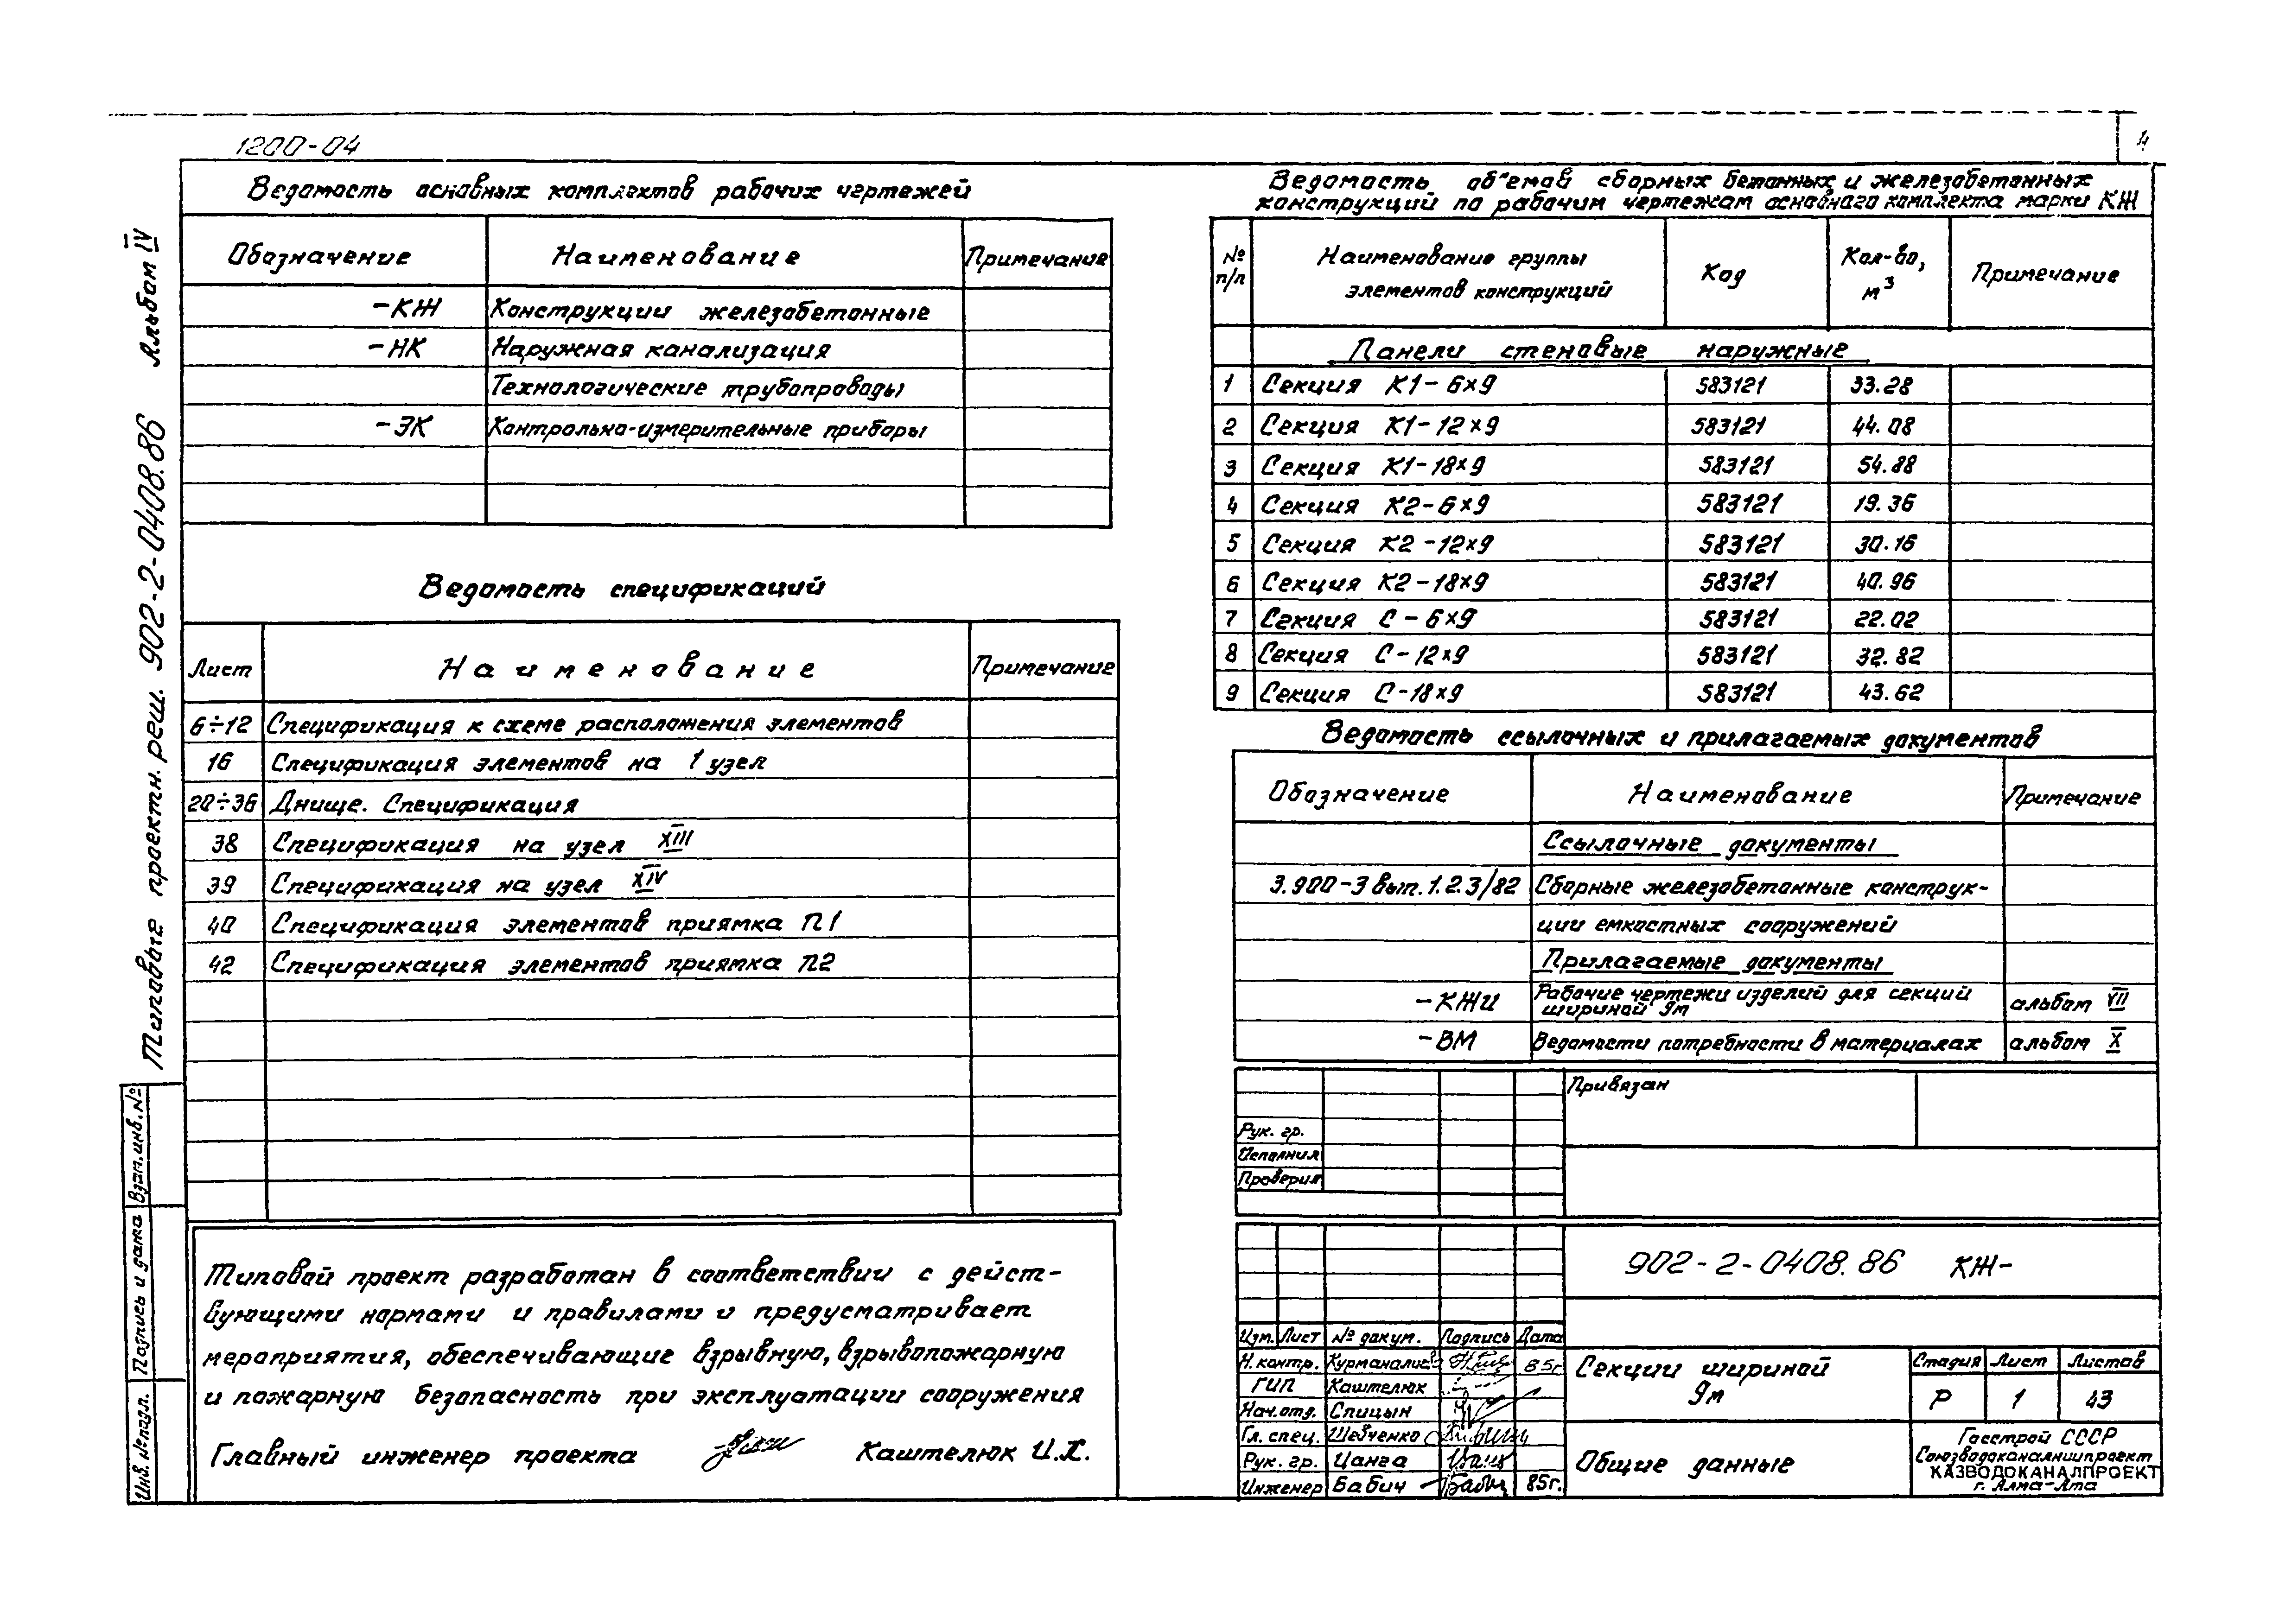 1200-04
4
Альбом IV
Типовые проектн. реш. 902-2-0408.86
Взам.инв.№
Подпись и дата
Инв. №подл.
Ведомость основных комплектов рабочих чертежей
Обозначение Наименование Примечание
-КЖ Конструкции железобетонные
-НК Наружная канализация
Технологические трубопроводы
-ЭК Контрольно-измерительные приборы
Ведомость спецификаций
Лист Наименование Примечание
6÷12 Спецификация к схеме расположения элементов
16 Спецификация элементов на 1 узел
20÷36 Днище. Спецификация
38 Спецификация на узел XIII
39 Спецификация на узел XIV
40 Спецификация элементов приямка П1
42 Спецификация элементов приямка П2
Типовой проект разработан в соответствии с дейст-
вующими нормами и правилами и предусматривает
мероприятия, обеспечивающие взрывную, взрывопожарную
и пожарную безопасность при эксплуатации сооружения
Главный инженер проекта Каштелюк И.Х.
Ведомость об"емов сборных бетонных и железобетонных
конструкций по рабочим чертежам основного комплекта марки КЖ
№ п/п Наименование группы элементов конструкций Код Кол-во, м³ Примечание
Панели стеновые наружные
1 Секция К1-6×9 583121 33.28
2 Секция К1-12×9 583121 44.08
3 Секция К1-18×9 583121 54.88
4 Секция К2-6×9 583121 19.36
5 Секция К2-12×9 583121 30.16
6 Секция К2-18×9 583121 40.96
7 Секция С-6×9 583121 22.02
8 Секция С-12×9 583121 32.82
9 Секция С-18×9 583121 43.62
Ведомость ссылочных и прилагаемых документов
Обозначение Наименование Примечание
Ссылочные документы
3.900-3 вып.1.2.3/82 Сборные железобетонные конструк-
ции емкостных сооружений
Прилагаемые документы
-КЖИ Рабочие чертежи изделий для секций
шириной 9м альбом VII
-ВМ Ведомости потребности в материалах альбом X
Привязан
Рук. гр.
Исполнил
Проверил
902-2-0408.86 КЖ-
Изм. Лист № докум. Подпись Дата
Н.контр. 85г
ГИП Каштелюк
Нач.отд. Спицын
Гл. спец. Шевченко
Рук. гр. Цанга
Инженер Бабич 85г.
Секции шириной
9м
Стадия Лист Листов
Р 1 43
Общие данные
Госстрой СССР
Союзводоканалниипроект
КАЗВОДОКАНАЛПРОЕКТ
г. Алма-Ата